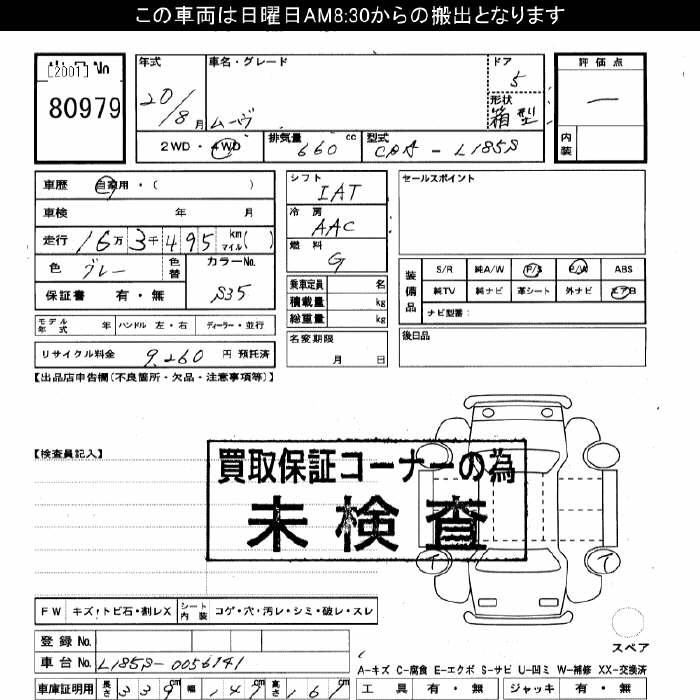 この車両は日曜日AM8:30からの搬出となります
[2001] No
80979
年式 車名・グレード ドア 5
20/8月 ムーヴ 形状 箱型
2WD・4WD 排気量 660 cc 型式 CBA-L185S
評価点
―
内装
車歴 自家用・( )
車検 年 月
走行 16万 3千 495 km マイル( )
色 グレー 色替 カラーNo. S35
保証書 有・無
モデル年式 年 ハンドル 左・右 ディーラー・並行
リサイクル料金 9,260 円 預託済
シフト IAT
冷房 AAC
燃料 G
乗車定員 名
積載量 kg
総重量 kg
名変期限 月 日
セールスポイント
装備品 S/R 純A/W P/S P/W ABS
純TV 純ナビ 革シート 外ナビ エアB
ナビ型番:
後日品
【出品店申告欄(不良箇所・欠品・注意事項等)】
【検査員記入】
買取保証コーナーの為
未検査
イ イ
FW キズ・トビ石・割レX シート内装 コゲ・穴・汚レ・シミ・破レ・スレ
スペア
登録No.
車台No. L185S-0056741
A-キズ C-腐食 E-エクボ S-サビ U-凹ミ W-補修 XX-交換済
車庫証明用 長さ 339cm 幅 147cm 高さ 167cm
工具 有・無 ジャッキ 有・無